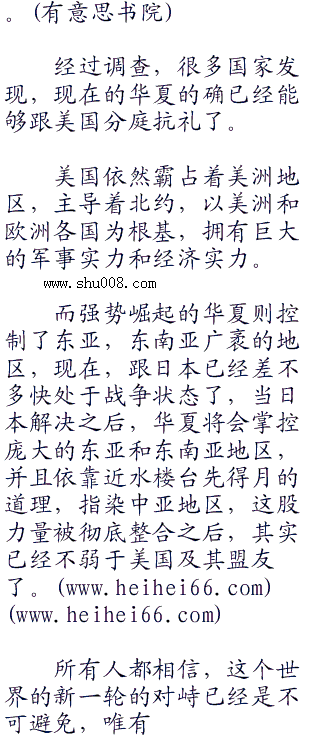 。(有意思书院)
经过调查，很多国家发
现，现在的华夏的确已经能
够跟美国分庭抗礼了。
美国依然霸占着美洲地
区，主导着北约，以美洲和
欧洲各国为根基，拥有巨大
的军事实力和经济实力。
www.shu008.com
而强势崛起的华夏则控
制了东亚，东南亚广袤的地
区，现在，跟日本已经差不
多快处于战争状态了，当日
本解决之后，华夏将会掌控
庞大的东亚和东南亚地区，
并且依靠近水楼台先得月的
道理，指染中亚地区，这股
力量被彻底整合之后，其实
已经不弱于美国及其盟友
了。(www.heihei66.com)
(www.heihei66.com)
所有人都相信，这个世
界的新一轮的对峙已经是不
可避免，唯有